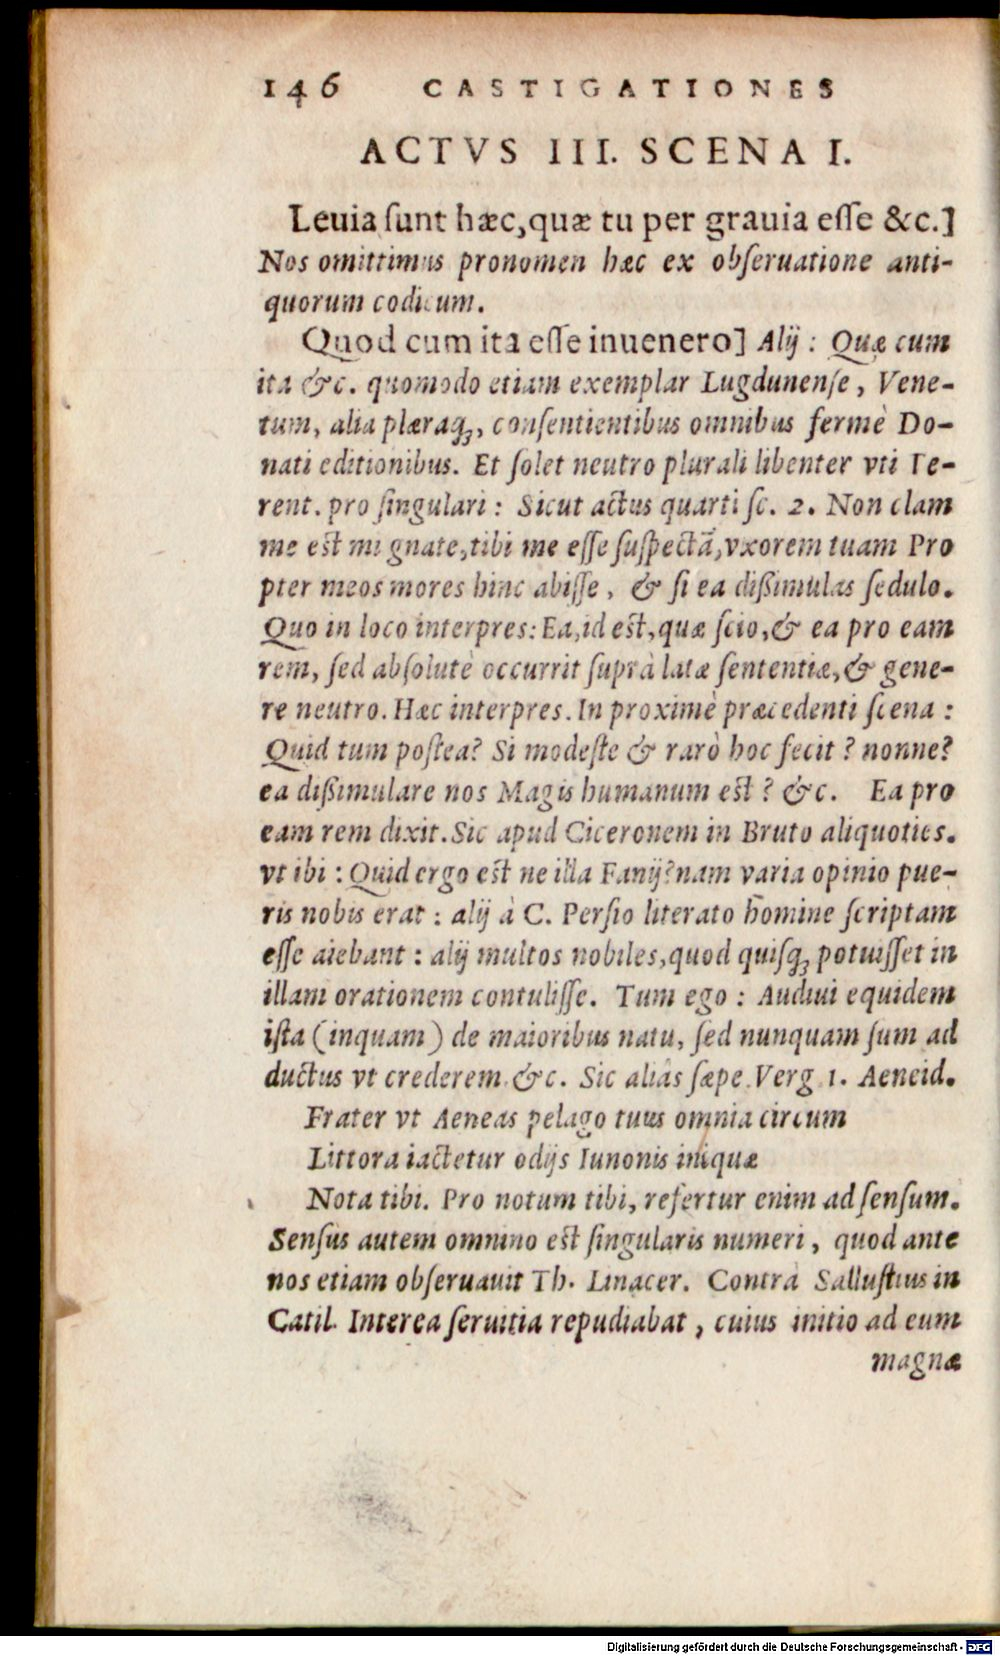 146 CASTIGATIONES
ACTVS III. SCENA I.
Leuia ſunt hæc, quæ tu per grauia eſſe &c.]
Nos omittimus pronomen hæc ex obſeruatione anti-
quorum codicum.
Quod cum ita eſſe inuenero] Alij : Quæ cum
ita &c. quomodo etiam exemplar Lugdunenſe, Vene-
tum, alia plæraq́;, conſentientibus omnibus fermè Do-
nati editionibus. Et ſolet neutro plurali libenter vti Te-
rent. pro ſingulari : Sicut actus quarti ſc. 2. Non clam
me est mi gnate, tibi me eſſe ſuſpectā, vxorem tuam Pro
pter meos mores hinc abiſſe, & ſi ea dißimulas ſedulo.
Quo in loco interpres: Ea, id est, quæ ſcio, & ea pro eam
rem, ſed abſolutè occurrit ſuprà latæ ſententiæ, & gene-
re neutro. Hæc interpres. In proximè præcedenti ſcena :
Quid tum poſtea? Si modeſte & rarò hoc fecit ? nonne?
ea dißimulare nos Magis humanum est ? &c. Ea pro
eam rem dixit. Sic apud Ciceronem in Bruto aliquoties.
vt ibi : Quid ergo est ne illa Fanij? nam varia opinio pue-
ris nobis erat : alij à C. Perſio literato homine ſcriptam
eſſe aiebant : alij multos nobiles, quod quiſq; potuiſſet in
illam orationem contuliſſe. Tum ego : Audiui equidem
iſta (inquam) de maioribus natu, ſed nunquam ſum ad
ductus vt crederem &c. Sic aliâs ſæpe. Verg 1. Aeneid.
Frater vt Aeneas pelago tuus omnia circum
Littora iactetur odijs Iunonis iniquæ
Nota tibi. Pro notum tibi, refertur enim ad ſenſum.
Senſus autem omnino est ſingularis numeri, quod ante
nos etiam obſeruauit Th. Linacer. Contrà Salluſtius in
Catil. Interea ſeruitia repudiabat, cuius initio ad eum
magnæ
Digitalisierung gefördert durch die Deutsche Forschungsgemeinschaft - DFG